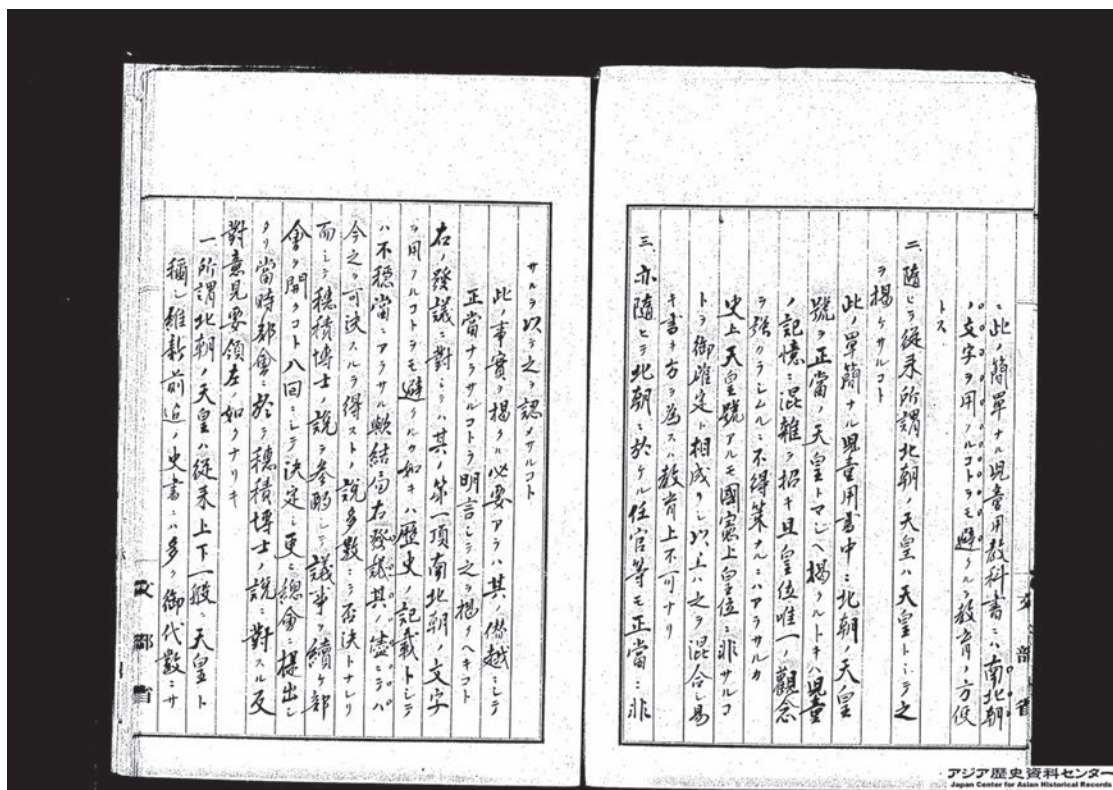 此ノ簡單ナル児童用教科書ニハ南北朝
ノ文字ヲ用フルコトヲモ避クルヲ教育ノ方便
トス、
二、隨ヒテ從来所謂北朝ノ天皇ハ天皇トシテ之
ヲ揚ケサルコト
此ノ單簡ナル児童用書中ニ北朝ノ天皇
號ヲ正當ノ天皇トマシヘ揭クルトキハ児童
ノ記憶ニ混雑ヲ招キ且皇位唯一ノ觀念
ヲ弱クラシムルニ不得策ナルニハアラサルカ
史上天皇號アルモ國憲上皇位ニ非サルコ
トヲ御確定ト相成リシ以上ハ之ヲ混合シ易
キ書キ方ヲ為スハ教育上不可ナリ
三、亦隨ヒテ北朝ニ於ケル任官等モ正當ニ非
サルヲ以テ之ヲ認メサルコト
此ノ事實ヲ揭クル必要アラハ其ノ僭越ニシテ
正當ナラサルコトヲ明言シテ之ヲ揭クヘキコト
右ノ發議ニ對シテハ其ノ第一項南北朝ノ文字
ヲ用フルコトヲモ避クルカ如キハ歴史ノ記載トシテ
ハ不穏當ニアラサル歟結局右發議其ノ儘ニテハ
今之ヲ可決スルヲ得ストノ説多數ニシテ否決トナレリ
而シテ穂積博士ノ説ヲ参酌シテ議事ヲ續ケ部
會ヲ開クコト八回ニシテ決定シ更ニ總會ニ提出シ
タリ當時部會ニ於テ穂積博士ノ説ニ對スル反
對意見要領左ノ如クナリキ
一、所謂北朝ノ天皇ハ從来上下一般ニ天皇ト
稱シ維新前近ノ史書ニハ多ク御代數ニサ
文部省
アジア歴史資料センター
Japan Center for Asian Historical Records